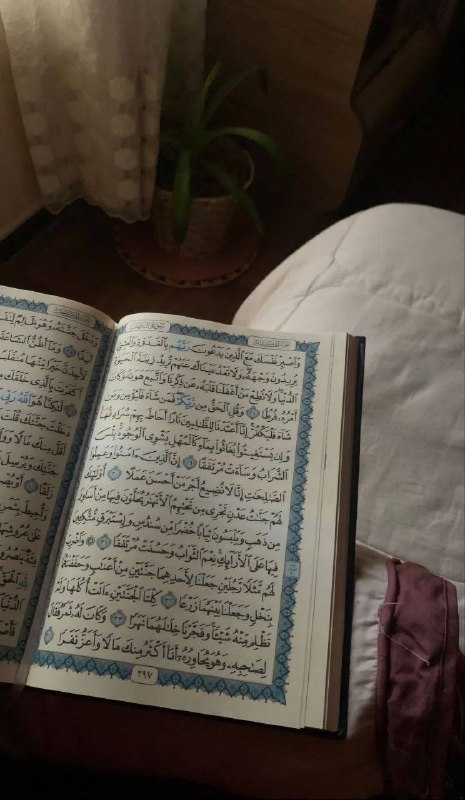 وَٱصْبِرْ نَفْسَكَ مَعَ ٱلَّذِينَ يَدْعُونَ رَبَّهُم بِٱلْغَدَوٰةِ وَٱلْعَشِىِّ
يُرِيدُونَ وَجْهَهُۥ وَلَا تَعْدُ عَيْنَاكَ عَنْهُمْ تُرِيدُ زِينَةَ ٱلْحَيَوٰةِ
ٱلدُّنْيَا وَلَا تُطِعْ مَنْ أَغْفَلْنَا قَلْبَهُۥ عَن ذِكْرِنَا وَٱتَّبَعَ هَوَىٰهُ وَكَانَ
أَمْرُهُۥ فُرُطًا ٢٨ وَقُلِ ٱلْحَقُّ مِن رَّبِّكُمْ فَمَن شَآءَ فَلْيُؤْمِن وَمَن
شَآءَ فَلْيَكْفُرْ إِنَّآ أَعْتَدْنَا لِلظَّٰلِمِينَ نَارًا أَحَاطَ بِهِمْ سُرَادِقُهَا
وَإِن يَسْتَغِيثُوا۟ يُغَاثُوا۟ بِمَآءٍ كَٱلْمُهْلِ يَشْوِى ٱلْوُجُوهَ بِئْسَ
ٱلشَّرَابُ وَسَآءَتْ مُرْتَفَقًا ٢٩ إِنَّ ٱلَّذِينَ ءَامَنُوا۟ وَعَمِلُوا۟
ٱلصَّٰلِحَٰتِ إِنَّا لَا نُضِيعُ أَجْرَ مَنْ أَحْسَنَ عَمَلًا ٣٠ أُو۟لَٰٓئِكَ
لَهُمْ جَنَّٰتُ عَدْنٍ تَجْرِى مِن تَحْتِهِمُ ٱلْأَنْهَٰرُ يُحَلَّوْنَ فِيهَا مِنْ أَسَاوِرَ
مِن ذَهَبٍ وَيَلْبَسُونَ ثِيَابًا خُضْرًا مِّن سُندُسٍ وَإِسْتَبْرَقٍ مُّتَّكِـِٔينَ
فِيهَا عَلَى ٱلْأَرَآئِكِ نِعْمَ ٱلثَّوَابُ وَحَسُنَتْ مُرْتَفَقًا ٣١ وَٱضْرِبْ
لَهُم مَّثَلًا رَّجُلَيْنِ جَعَلْنَا لِأَحَدِهِمَا جَنَّتَيْنِ مِنْ أَعْنَٰبٍ وَحَفَفْنَٰهُمَا
بِنَخْلٍ وَجَعَلْنَا بَيْنَهُمَا زَرْعًا ٣٢ كِلْتَا ٱلْجَنَّتَيْنِ ءَاتَتْ أُكُلَهَا وَلَمْ
تَظْلِم مِّنْهُ شَيْـًٔا وَفَجَّرْنَا خِلَٰلَهُمَا نَهَرًا ٣٣ وَكَانَ لَهُۥ ثَمَرٌ فَقَالَ
لِصَٰحِبِهِۦ وَهُوَ يُحَاوِرُهُۥٓ أَنَا۠ أَكْثَرُ مِنكَ مَالًا وَأَعَزُّ نَفَرًا
٢٩٧
وَدَخَلَ جَنَّتَهُۥ وَهُوَ ظَالِمٌ
أَبَدًا ٣٥ وَمَآ أَظُنُّ ٱلسَّاعَةَ
لَأَجِدَنَّ خَيْرًا مِّنْهَا مُنقَلَبًا
أَكَفَرْتَ بِٱلَّذِى خَلَقَكَ مِن
لَّٰكِنَّا۠ هُوَ ٱللَّهُ رَبِّى
دَخَلْتَ جَنَّتَكَ قُلْتَ
أَقَلَّ مِنكَ مَالًا وَوَلَدًا
جَنَّتِكَ وَيُرْسِلَ
زَلَقًا ٤٠ أَوْ يُصْبِحَ